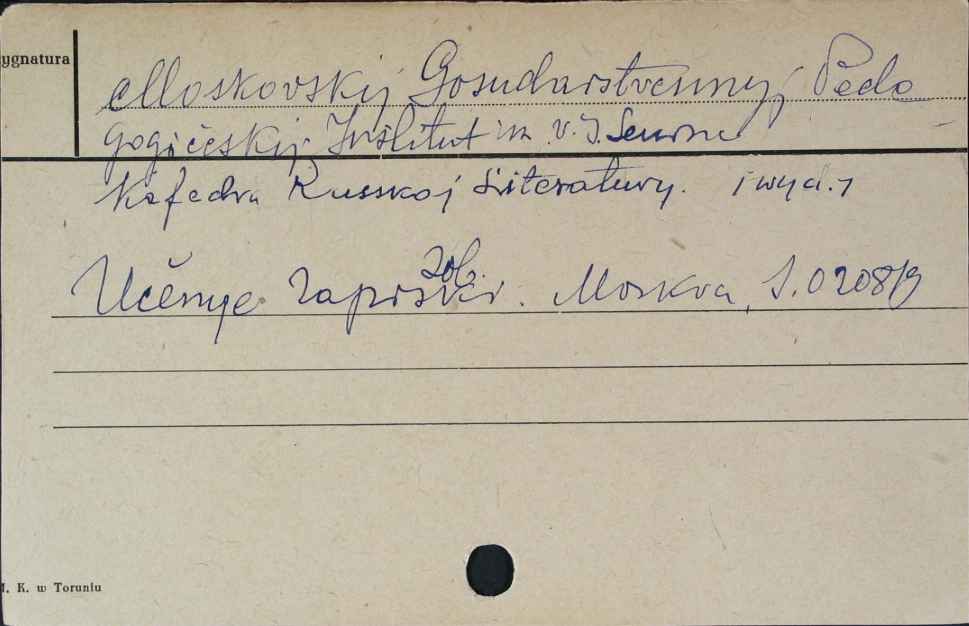 ygnatura
Moskovskij Gosudarstvennyj Peda
gogičeskij Institut im. V. I. Lenina
Kafedra Russkoj Literatury. [wyd.]
zob.
Učenye zapiski. Moskva, S. 0208/9
. K. w Toruniu